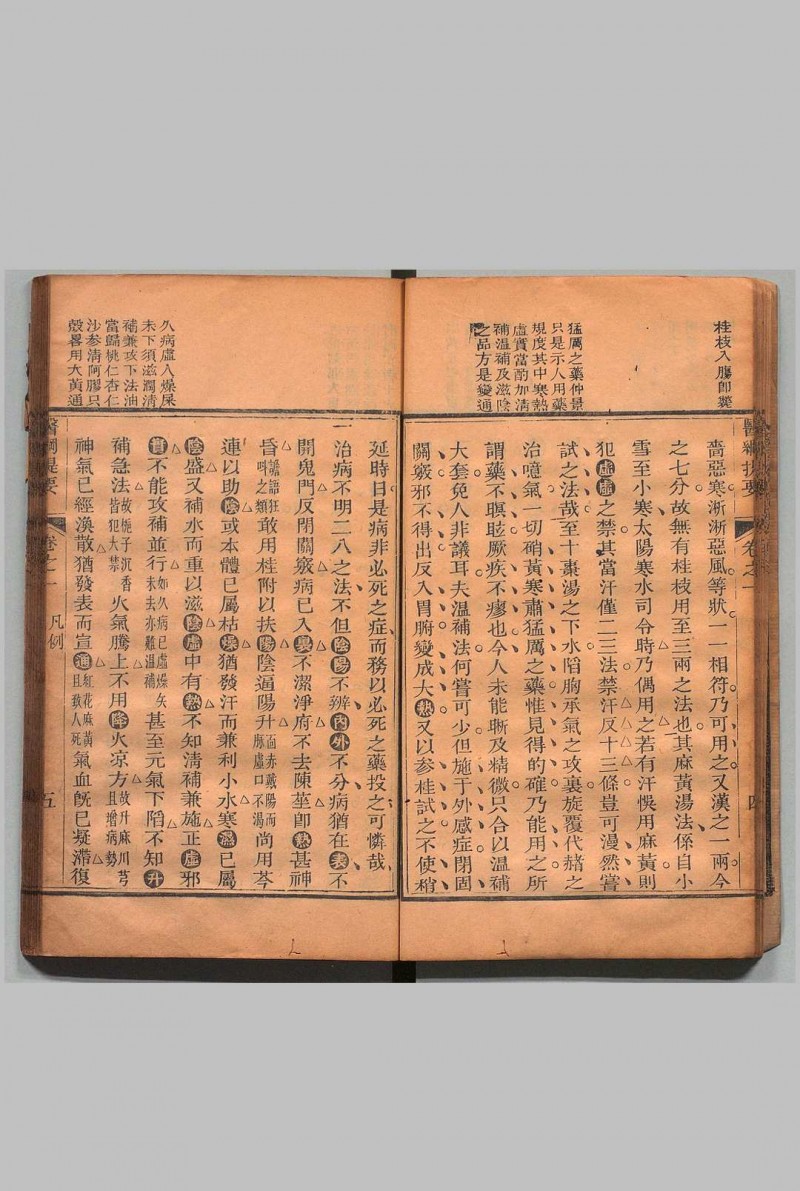 桂枝入膓即斃
猛厲之藥仲景
只是示人用藥
規度其中寒熱
虛實當酌加清
補溫補及滋陰
之品方是變通
嗇惡寒淅淅惡風等狀一一相符乃可用之又漢之一兩今
之七分故無有桂枝用至三兩之法也其麻黃湯法係自小
雪至小寒太陽寒水司令時乃偶用之若有汗悞用麻黃則
犯虛虛之禁其當汗僅二三法禁汗反十三條豈可漫然嘗
試之法哉至十棗湯之下水陷胸承氣之攻裏旋覆代赭之
治噫氣一切硝黃寒肅猛厲之藥惟見得的確乃能用之所
謂藥不瞑眩厥疾不瘳也今人未能晰及精微只合以溫補
大套免人非議耳夫溫補法何嘗可少但施于外感症閉固
關竅邪不得出反入胃腑變成大熱又以参桂試之不使稍
醫綱提要
卷之一
四
延時日是病非必死之症而務以必死之藥投之可憐哉
一治病不明二八之法不但陰陽不辨內外不分病猶在表不
開鬼門反閉關竅病已入裏不潔淨府不去陳莝卽熱甚神
昏譫語狂呌之類敢用桂附以扶陽陰逼陽升面赤戴陽而脈虛口不渴尚用芩
連以助陰或本體已屬枯燥猶發汗而兼利小水寒濕已屬
陰盛又補水而重以滋陰虛中有熱不知清補兼施正虛邪
實不能攻補並行如久病已虛燥矢未去亦難溫補甚至元氣下陷不知升
補急法故梔子沉香皆犯大禁火氣騰上不用降火凉方故升麻川芎且增病勢
神氣已經渙散猶發表而宣通紅花麻黃且致人死氣血旣已凝滯復
久病虛入燥屎
未下須滋潤清
補兼攻下法油
當歸桃仁杏仁
沙参清阿膠只
殼畧用大黃通
醫綱提要
卷之一
凡例
五